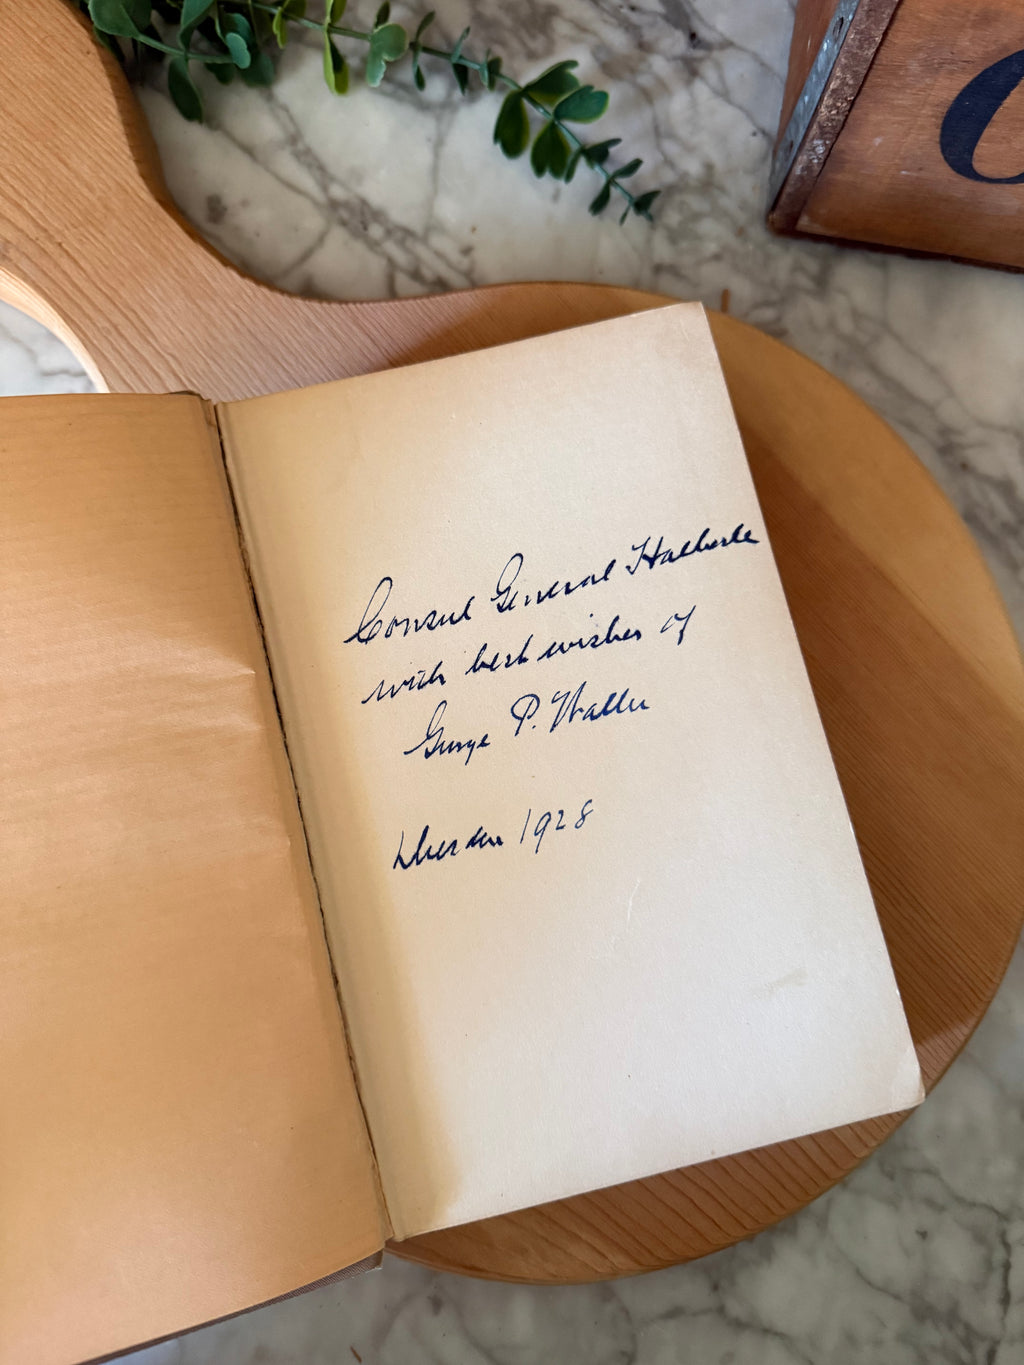 Consul General Haeberle
with best wishes of
George P. Waller
Dresden 1928